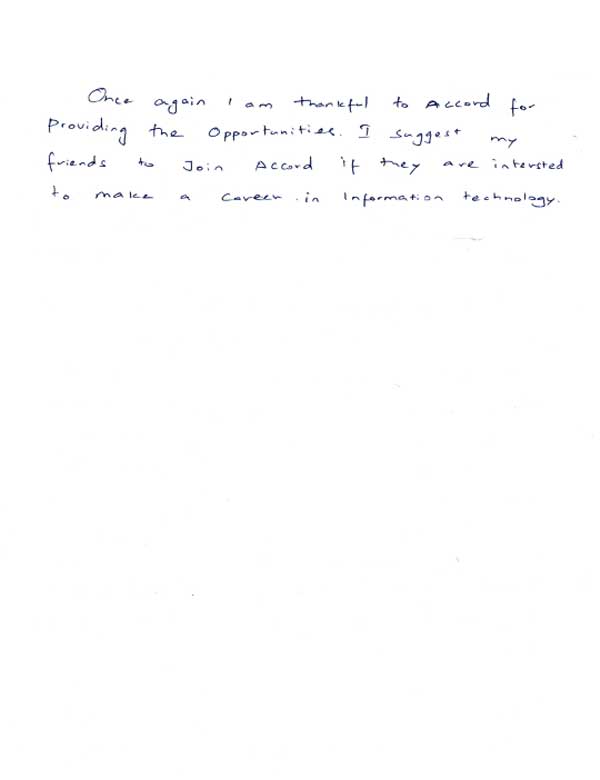 Once again I am thankful to Accord for
Providing the Opportunities. I suggest my
friends to Join Accord if they are intersted
to make a Career in Information technology.